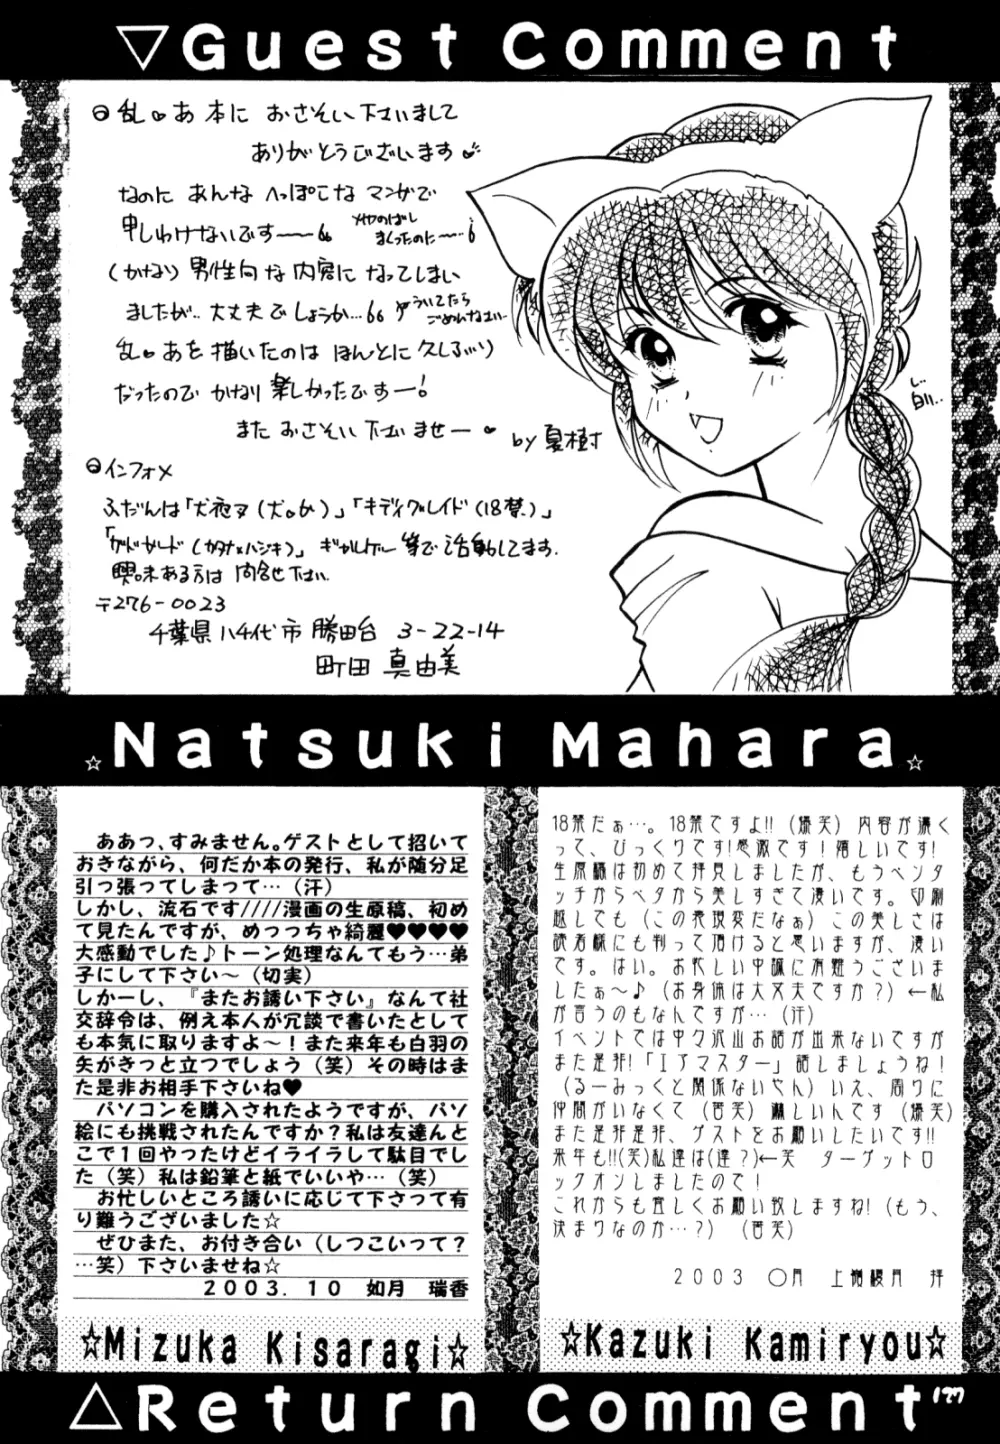 ▽Guest Comment
乱♥あ 本に おさそい 下さいまして
ありがとうございます
なのに あんな へっぽこな マンガで
申しわけないです〜〜
〆切のばし
まくったのに〜…
(かなり) 男性向な内容に なってしまい
ましたが‥ 大丈夫でしょうか…
ういてたら
ごめんなさい…
乱♥あを 描いたのは ほんとに 久しぶり
だったので かなり 楽しかったですー!
また おさそい 下さいませー♥
by 夏樹
し…
白い…
インフォメ
ふだんは「犬夜叉(犬×か)」「キディグレイド(18禁)」
「ゲドガルド(カタナ×ハジキ)」 ギャルゲー 等で 活動してます.
興味ある方は 問合せ下さい.
〒276-0023
千葉県八千代市 勝田台 3-22-14
町田 真由美
☆Natsuki Mahara☆
ああっ、すみません。ゲストとして招いて
おきながら、何だか本の発行、私が随分足
引っ張ってしまって…（汗）
しかし、流石です////漫画の生原稿、初め
て見たんですが、めっっちゃ綺麗♥♥♥♥
大感動でした♪トーン処理なんてもう…弟
子にして下さい〜（切実）
しかーし、『またお誘い下さい』なんて社
交辞令は、例え本人が冗談で書いたとして
も本気に取りますよ〜！また来年も白羽の
矢がきっと立つでしょう（笑）その時はま
た是非お相手下さいね♥
パソコンを購入されたようですが、パソ
絵にも挑戦されたんですか？私は友達んと
こで１回やったけどイライラして駄目でし
た（笑）私は鉛筆と紙でいいや…（笑）
お忙しいところ誘いに応じて下さって有
り難うございました☆
ぜひまた、お付き合い（しつこいって？
…笑）下さいませね☆
２００３．１０　如月　瑞香
☆Mizuka Kisaragi☆
18禁だぁ…。18禁ですよ!!（爆笑）内容が濃く
って、びっくりです!感激です！嬉しいです!
生原稿は初めて拝見しましたが、もうペンタ
ッチからベタから美しすぎて凄いです。印刷
越しても（この表現変だなぁ）この美しさは
読者様にも判って頂けると思いますが、凄い
です。はい。お忙しい中誠に有難うございま
したぁ〜♪（お身体は大丈夫ですか？）←私
が言うのもなんですが…（汗）
イベントでは中々沢山お話が出来ないですが
また是非!「Iアマスター」話しましょうね！
（るーみっくと関係ないやん）いえ、周りに
仲間がいなくて（苦笑）淋しいんです（爆笑）
また是非是非、ゲストをお願いしたいです!!
来年も!!(笑)私達は(達？)←笑　ターゲットロ
ックオンしましたので！
これからも宜しくお願い致しますね!（もう、
決まりなのか…？）（苦笑）
２００３　○月　上　　月　拝
☆Kazuki Kamiryou☆
△Return Comment
177